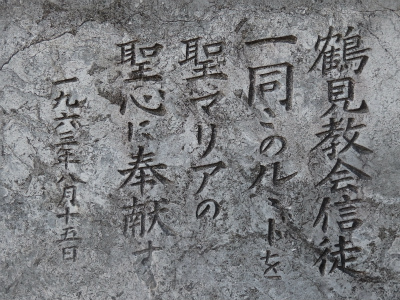 鶴見教会信徒
一同このルルドを
聖マリアの
聖心に奉献す
一九六二年八月十五日